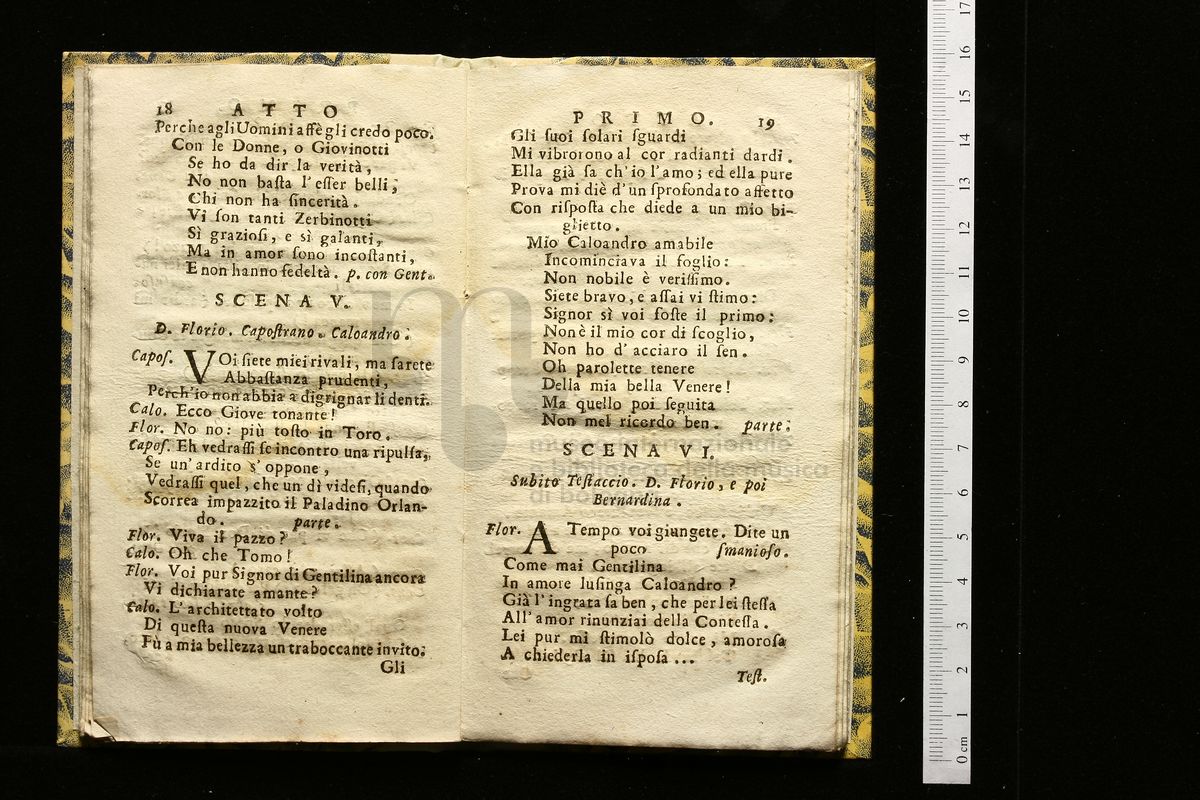 18 ATTO
Perche agli Uomini affè gli credo poco.
Con le Donne, o Giovinotti
Se ho da dir la verità,
No non baſta l'eſſer belli;
Chi non ha ſincerità.
Vi ſon tanti Zerbinotti
Sì grazioſi, e sì galanti,
Ma in amor ſono incoſtanti,
E non hanno fedeltà. p. con Gent.
SCENA V.
D. Florio. Capoſtrano. Caloandro.
Capoſ. VOi ſiete miei rivali, ma ſarete
Abbaſtanza prudenti,
Perch'io non abbia a digrignar li denti.
Calo. Ecco Giove tonante!
Flor. No no: più toſto in Toro.
Capoſ. Eh vedraſſi ſe incontro una ripulſa,
Se un'ardito s'oppone,
Vedraſſi quel, che un dì videſi, quando
Scorrea impazzito il Paladino Orlan-
do. parte.
Flor. Viva il pazzo?
Calo. Oh che Tomo!
Flor. Voi pur Signor di Gentilina ancora
Vi dichiarate amante?
Calo. L'architettato volto
Di queſta nuova Venere
Fù a mia bellezza un traboccante invito.
Gli
PRIMO. 19
Gli ſuoi ſolari ſguardi
Mi vibrorono al cor radianti dardi.
Ella già ſa ch'io l'amo; ed ella pure
Prova mi diè d'un ſprofondato affetto
Con riſpoſta che diede a un mio bi-
glietto.
Mio Caloandro amabile
Incominciava il foglio:
Non nobile è veriſſimo.
Siete bravo, e aſſai vi ſtimo:
Signor sì voi foſte il primo:
Non è il mio cor di ſcoglio,
Non ho d'acciaro il ſen.
Oh parolette tenere
Della mia bella Venere!
Ma quello poi ſeguita
Non mel ricordo ben. parte.
SCENA VI.
Subito Teſtaccio. D. Florio, e poi
Bernardina.
Flor. A Tempo voi giungete. Dite un
poco ſmanioſo.
Come mai Gentilina
In amore luſinga Caloandro?
Già l'ingrata ſa ben, che per lei ſteſſa
All'amor rinunziai della Conteſſa.
Lei pur mi ſtimolò dolce, amoroſa
A chiederla in iſpoſa ...
Teſt.
museo internazionale
e biblioteca della musica
di bologna
0 cm 1 2 3 4 5 6 7 8 9 10 11 12 13 14 15 16 17